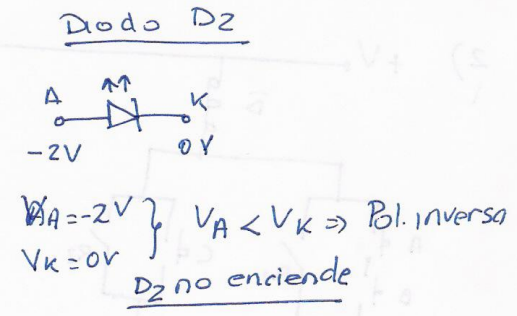 Diodo D2
A K
-2V 0V
VA=-2V } VA < VK => Pol. inversa
VK=0V
D2 no enciende